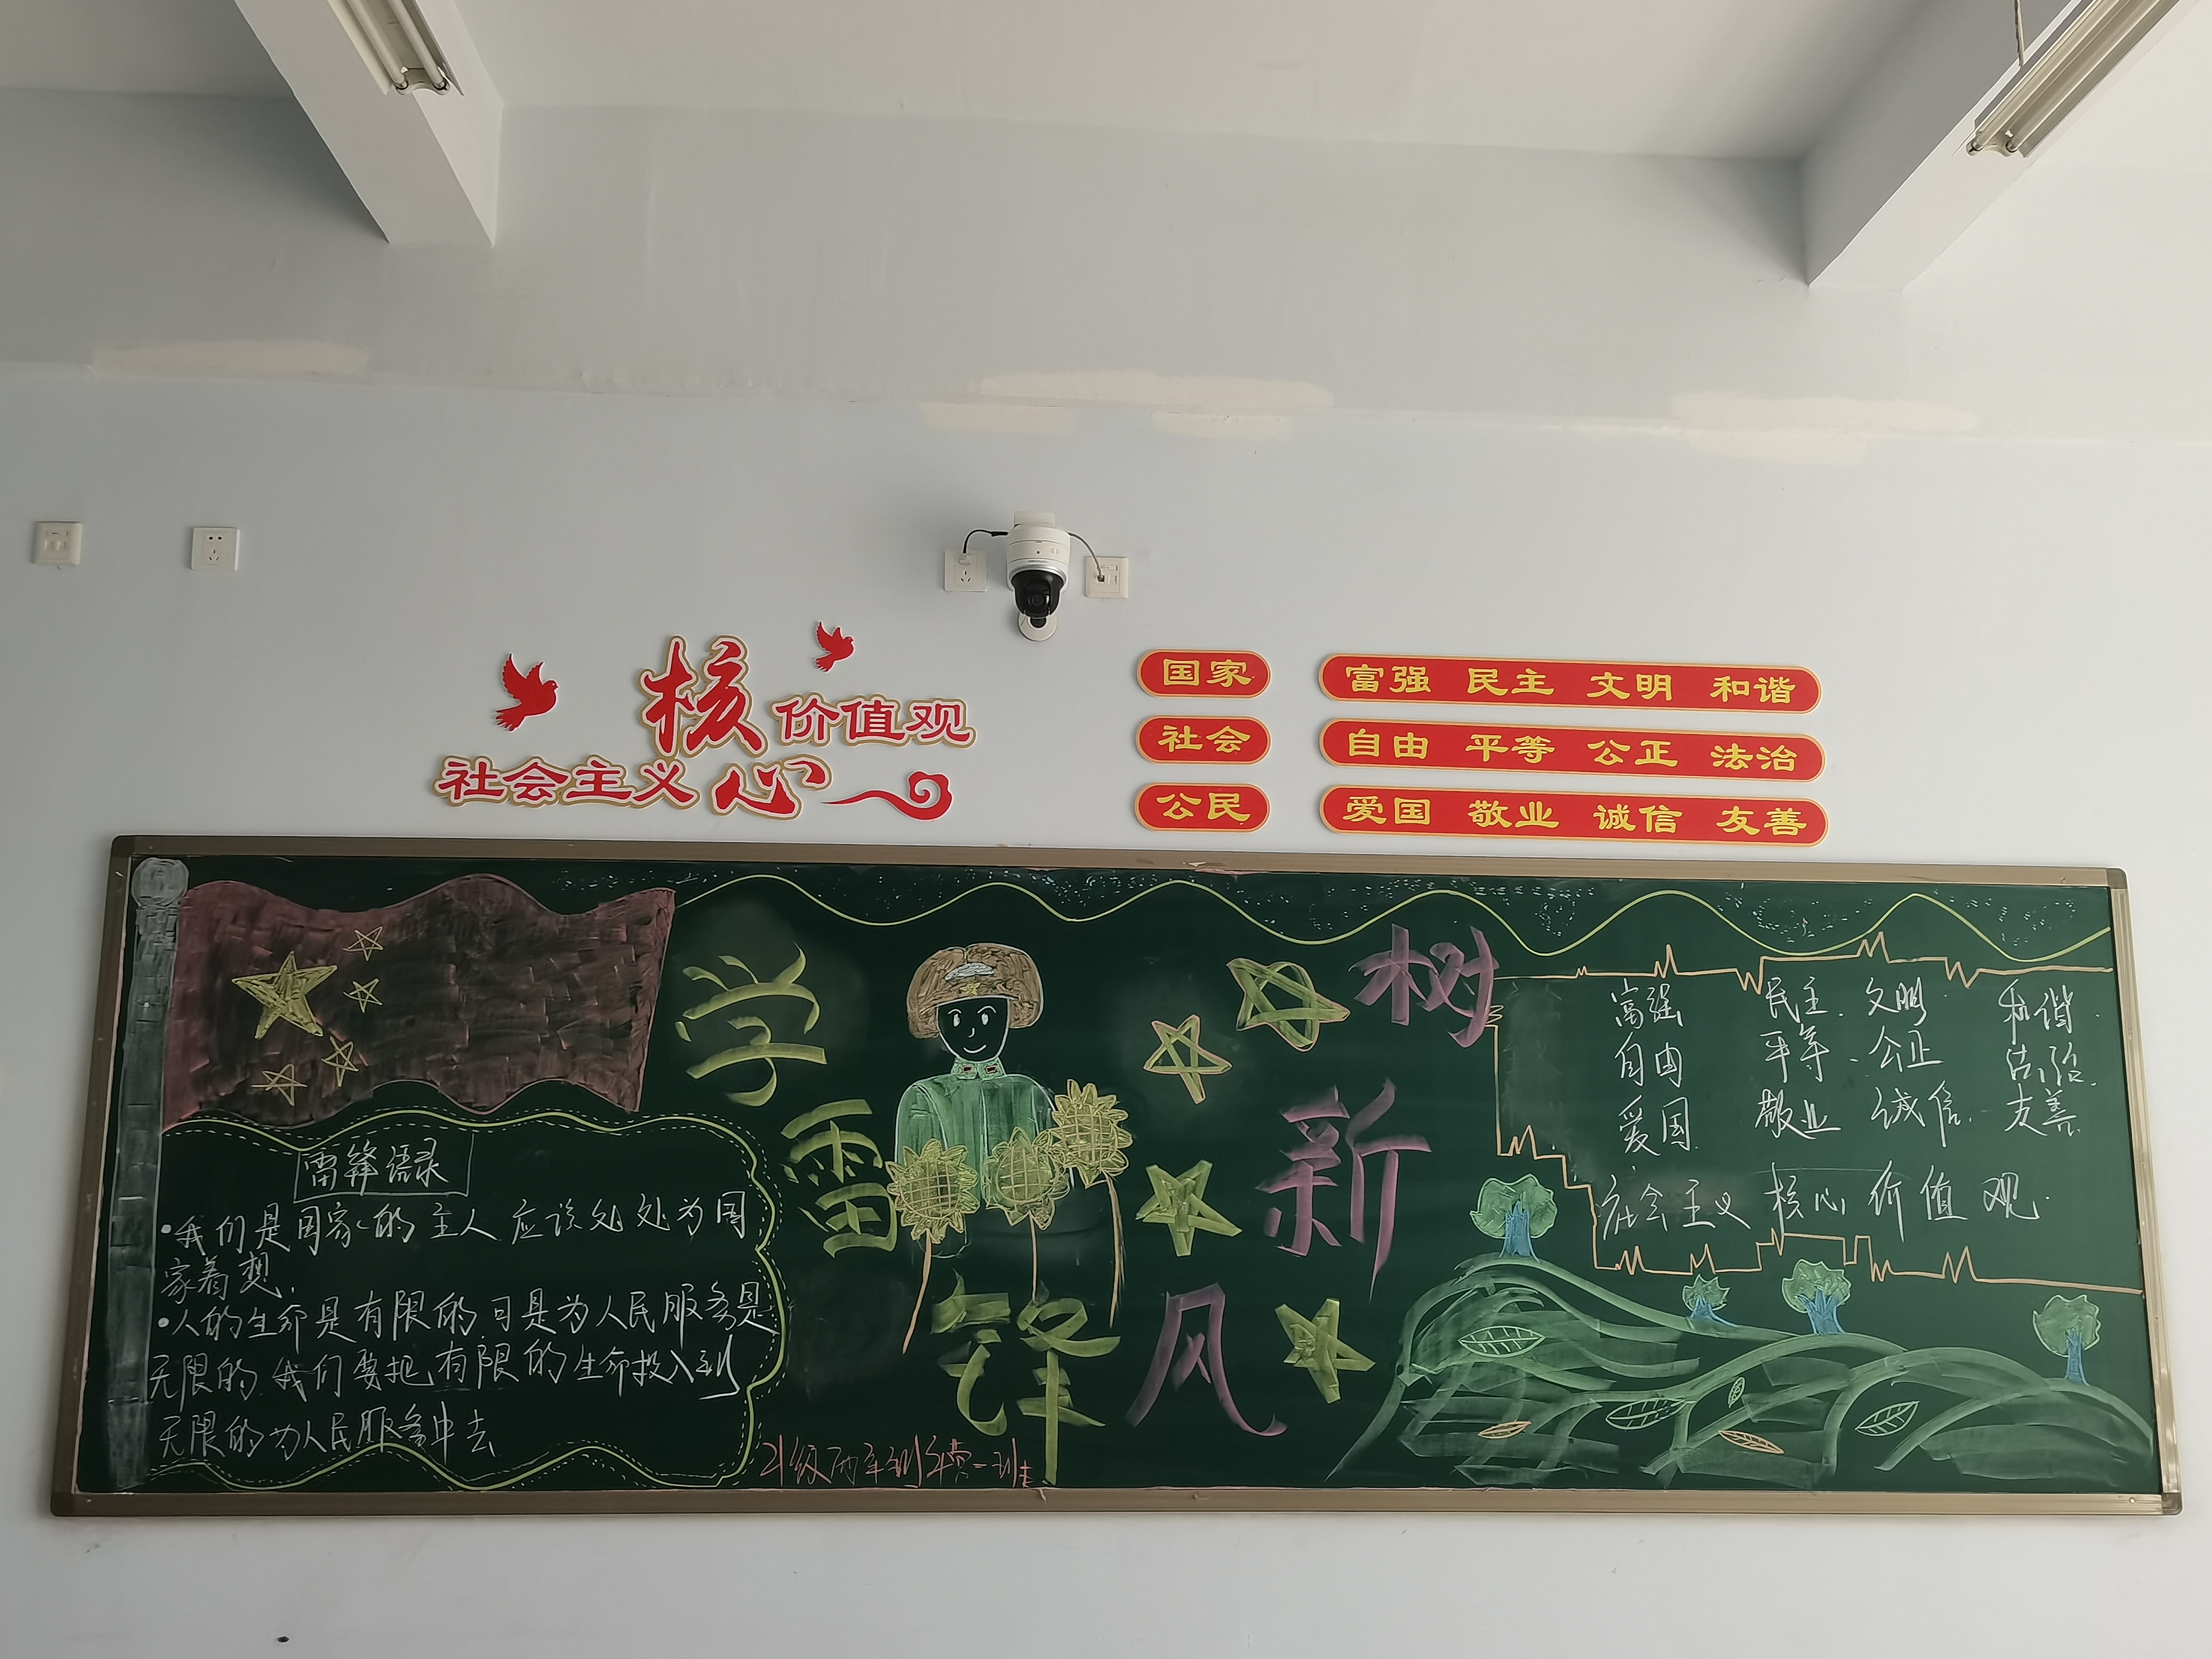 核价值观
社会主义心
国家 富强 民主 文明 和谐
社会 自由 平等 公正 法治
公民 爱国 敬业 诚信 友善
学雷锋
树新风
雷锋语录
·我们是国家的主人应该处处为国
家着想.
·人的生命是有限的可是为人民服务是
无限的 我们要把有限的生命投入到
无限的为人民服务中去
富强 民主 文明 和谐
自由 平等 公正 法治
爱国 敬业 诚信 友善
社会主义 核心价值观
21级两年制
一班